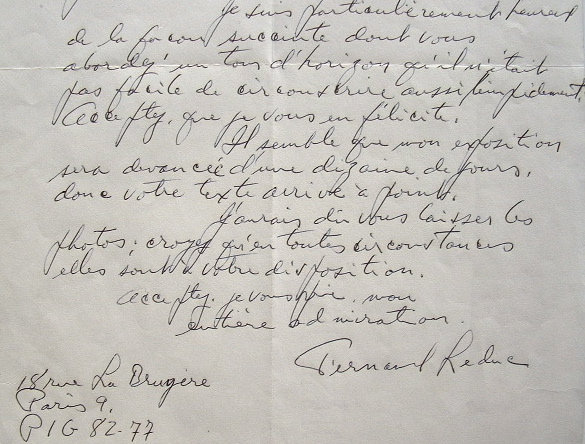 Je suis particulièrement heureux
de la façon succincte dont vous
abordez un tour d'horizon qu'il n'était
pas facile de circonscrire aussi limpidement.
Acceptez, que je vous en félicite.
Il semble que mon exposition
sera devancée d'une dizaine de jours,
donc votre texte arrive à point.
J'aurais dû vous laisser les
photos; croyez qu'en toutes circonstances
elles sont à votre disposition.
Acceptez, je vous prie, mon
entière admiration.
Fernand Leduc
18 rue La Bruyère
Paris 9.
PIG 82-77